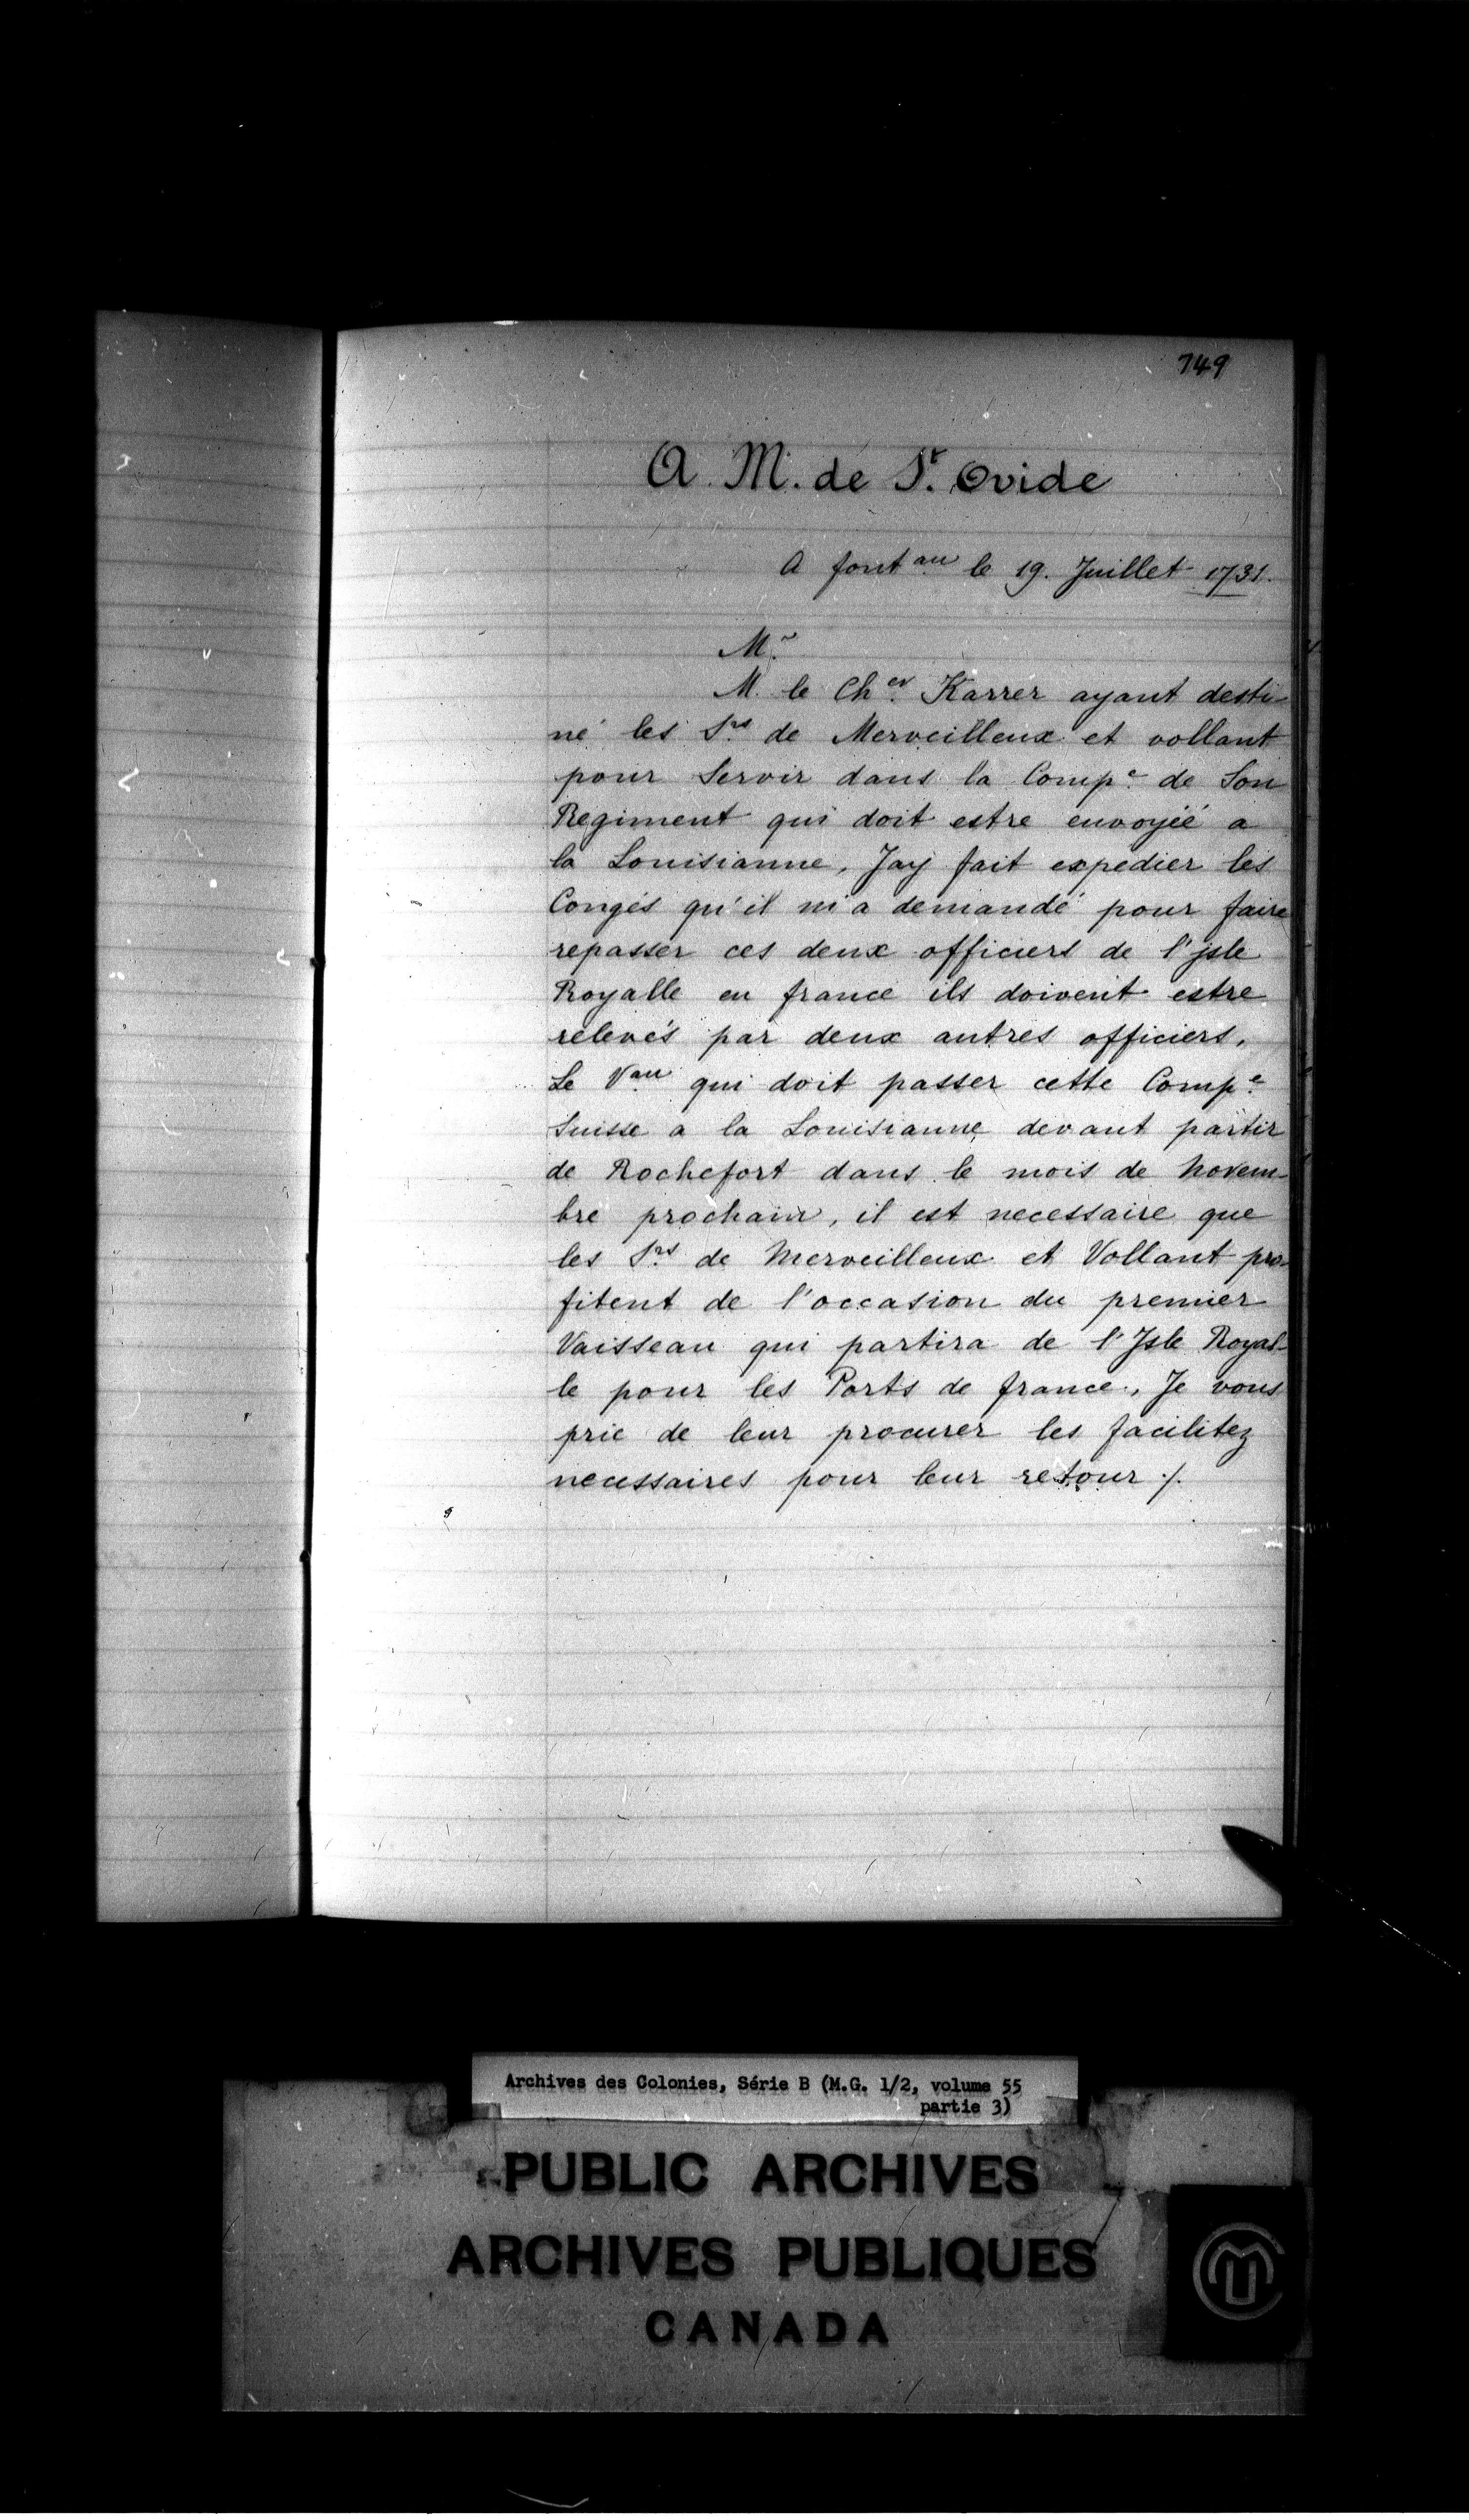 749
A M. de St. Ovide
A fontau le 19. Juillet 1731.
Mr.
M. le Cher. Karrer ayant desti-
né les Srs de Merveilleux et vollant
pour Servir dans la Compe de Son
Regiment qui doit estre envoyéé a
la Louisianne, Jay fait expedier les
Congés qu'il m'a demandé pour faire
repasser ces deux officiers de l'jsle
Royalle en france ils doivent estre
relevés par deux autres officiers.
Le Vau qui doit passer cette Compe
Suisse a la Louisianne devant partir
de Rochefort dans le mois de Novem-
bre prochain, il est necessaire que
les Srs de Merveilleux et Vollant pro-
fitent de l'occasion du premier
Vaisseau qui partira de l'Jsle Royal-
le pour les Ports de france, Je vous
prie de leur procurer les facilitez
necessaires pour leur retour ./.
Archives des Colonies, Série B (M.G. 1/2, volume 55
partie 3)
PUBLIC ARCHIVES
ARCHIVES PUBLIQUES
CANADA